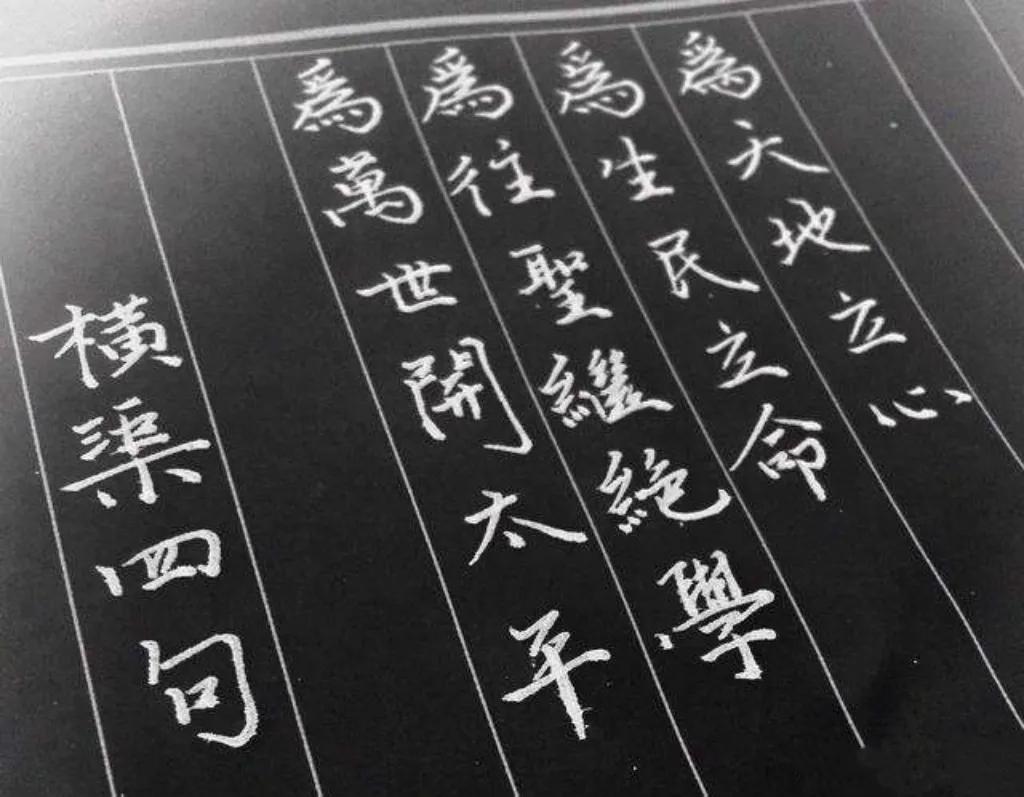 為天地立心
為生民立命
為往聖繼絶學
為萬世開太平
橫渠四句